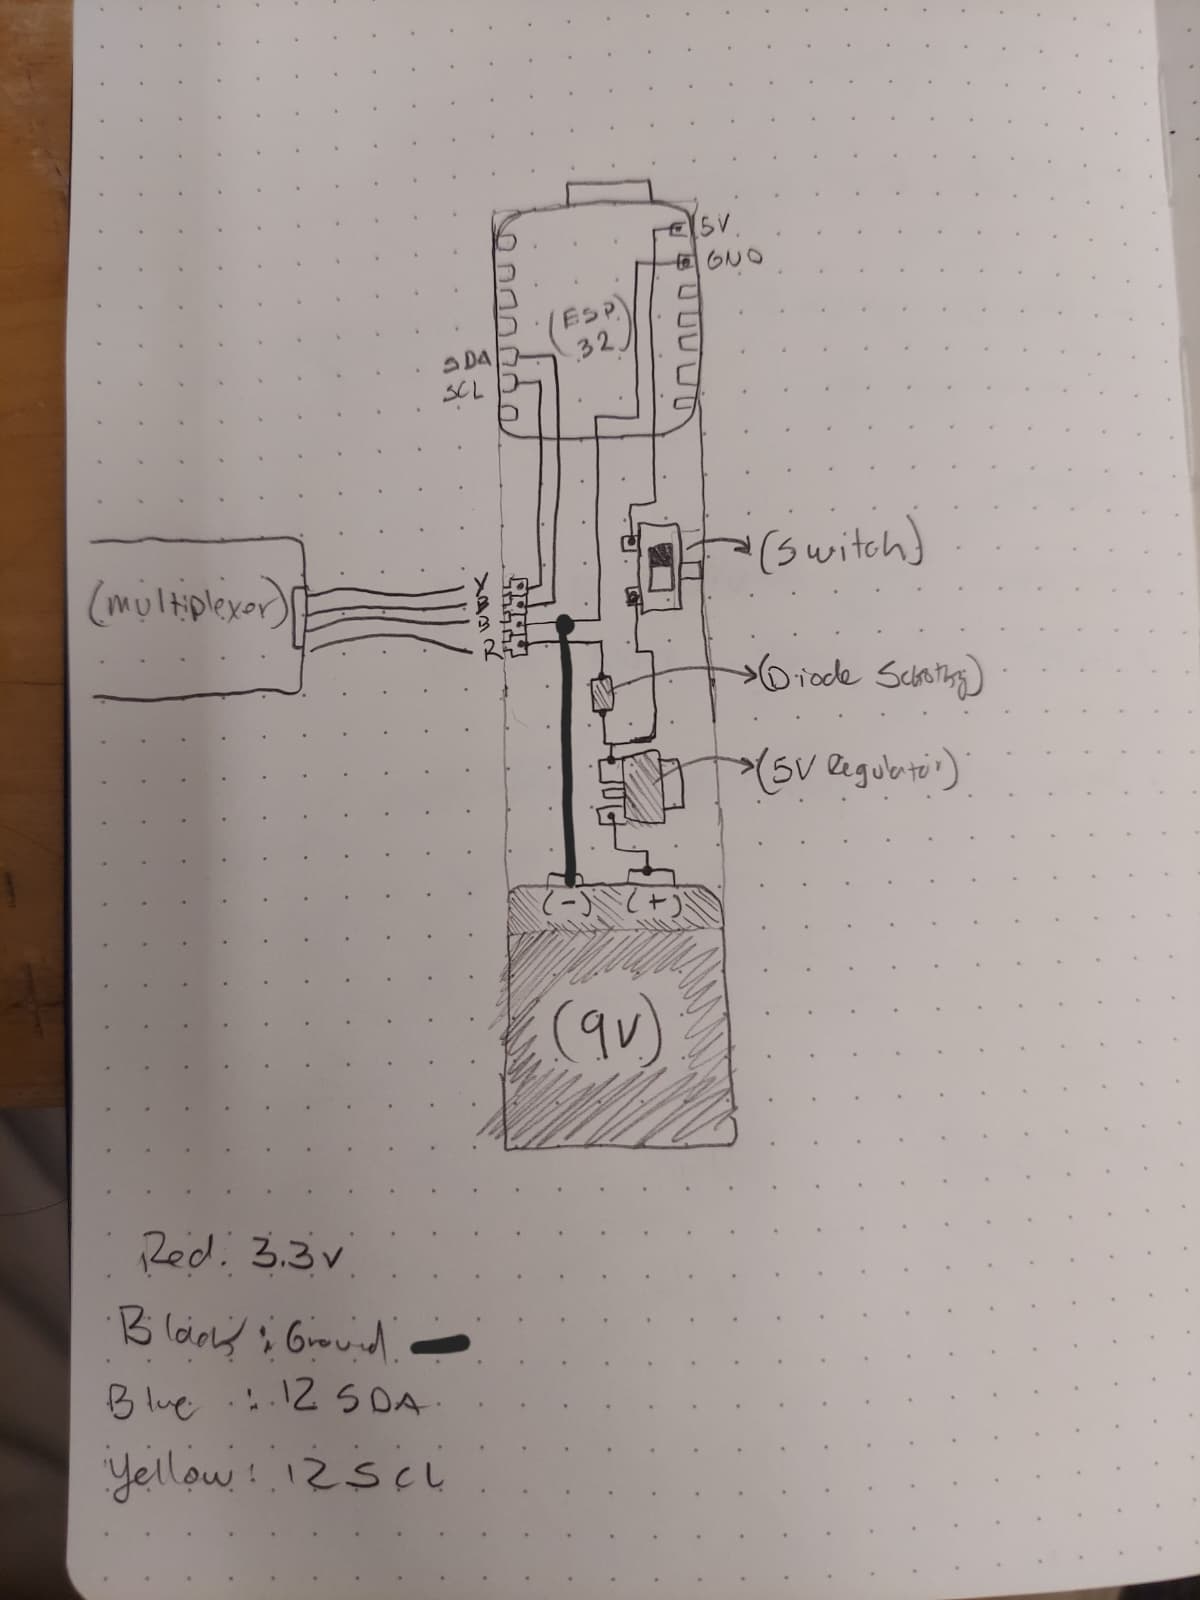 5V.
GND
(ESP
32)
SDA
SCL
(Switch)
Y
(multiplexer)
B
B
R
(Diode
(5V Regulator)
(-) (+)
(9V)
Red: 3.3v
Black : Ground
Blue : 12 SDA
Yellow: 12 SCL